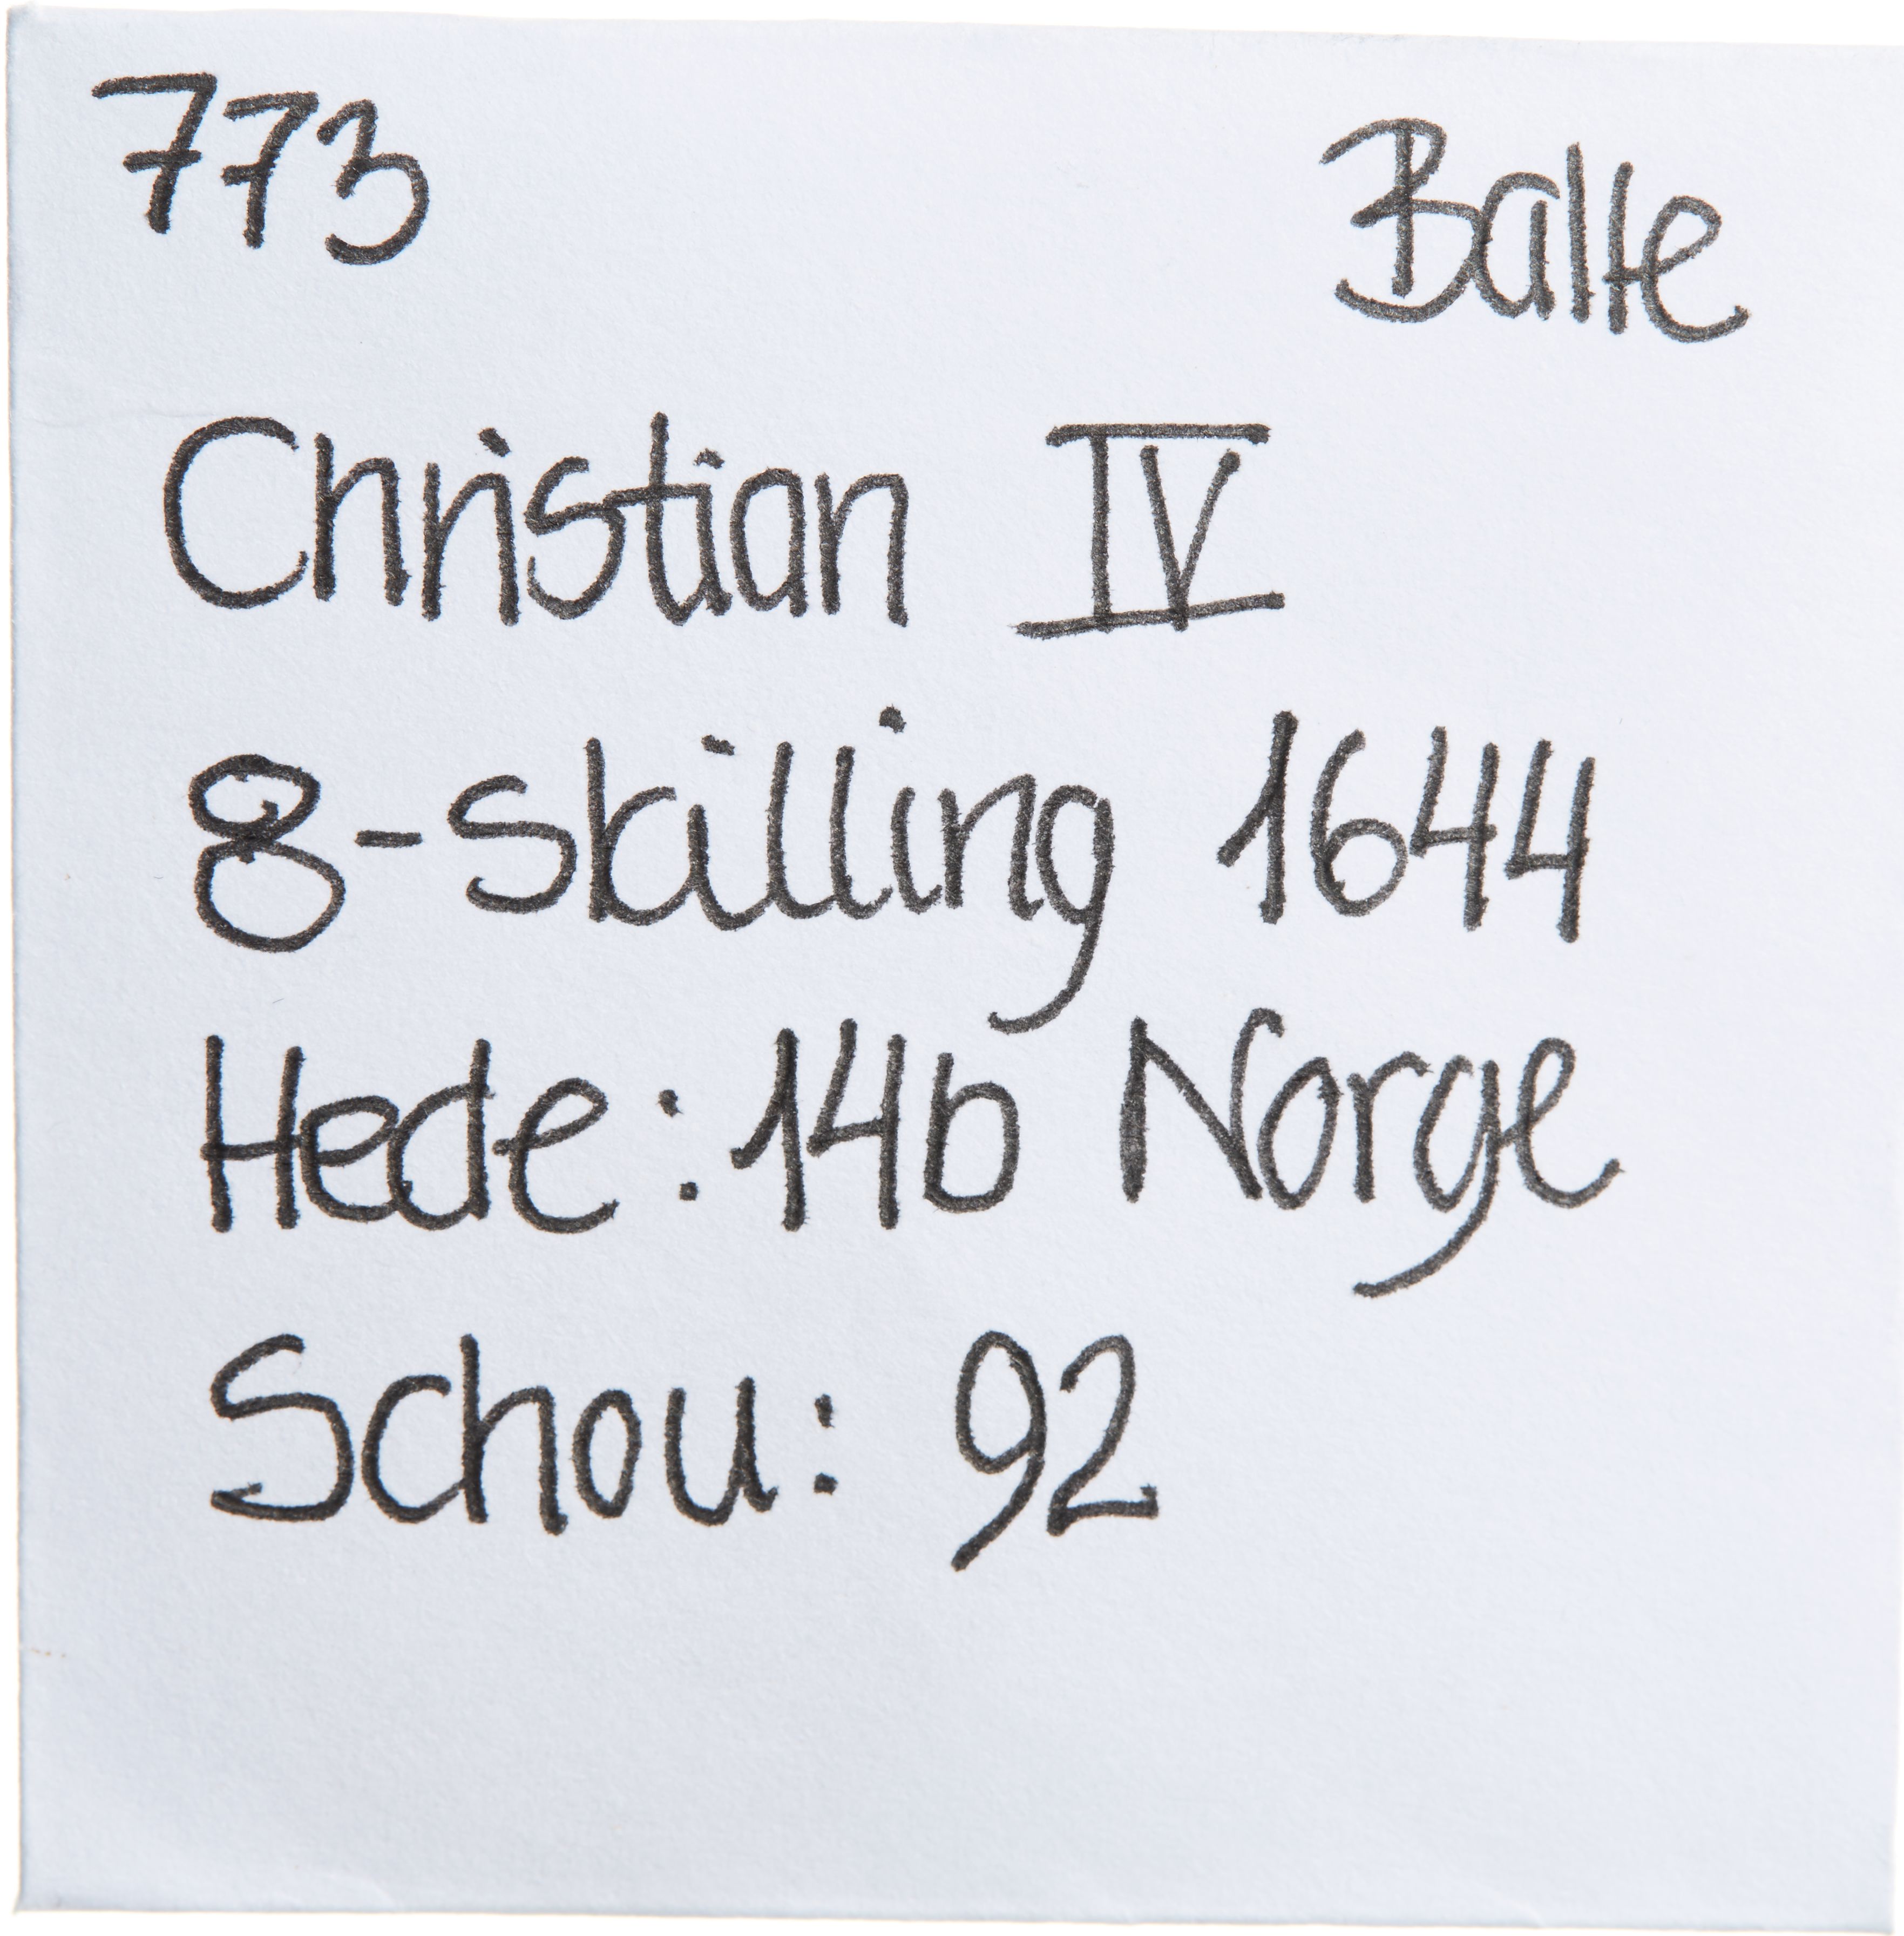 773 Balle
Christian IV
8-Skilling 1644
Hede: 14b Norge
Schou: 92